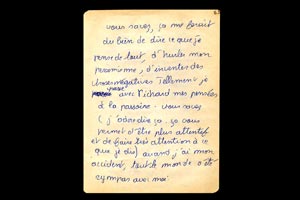 vous savez, ça me ferait
du bien de dire ce que je
pense de tout, d'hurler mon
pessimisme, d'inventer des
choses négatives tellement je
avec Richard mes pensées
à la passoire. vous savez
(j'ose dire ça, ça vous
permet d'être plus attentif
et de faire très attention à ce
que je dis) quand j'ai mon
accident, tout le monde a été
sympas avec moi.